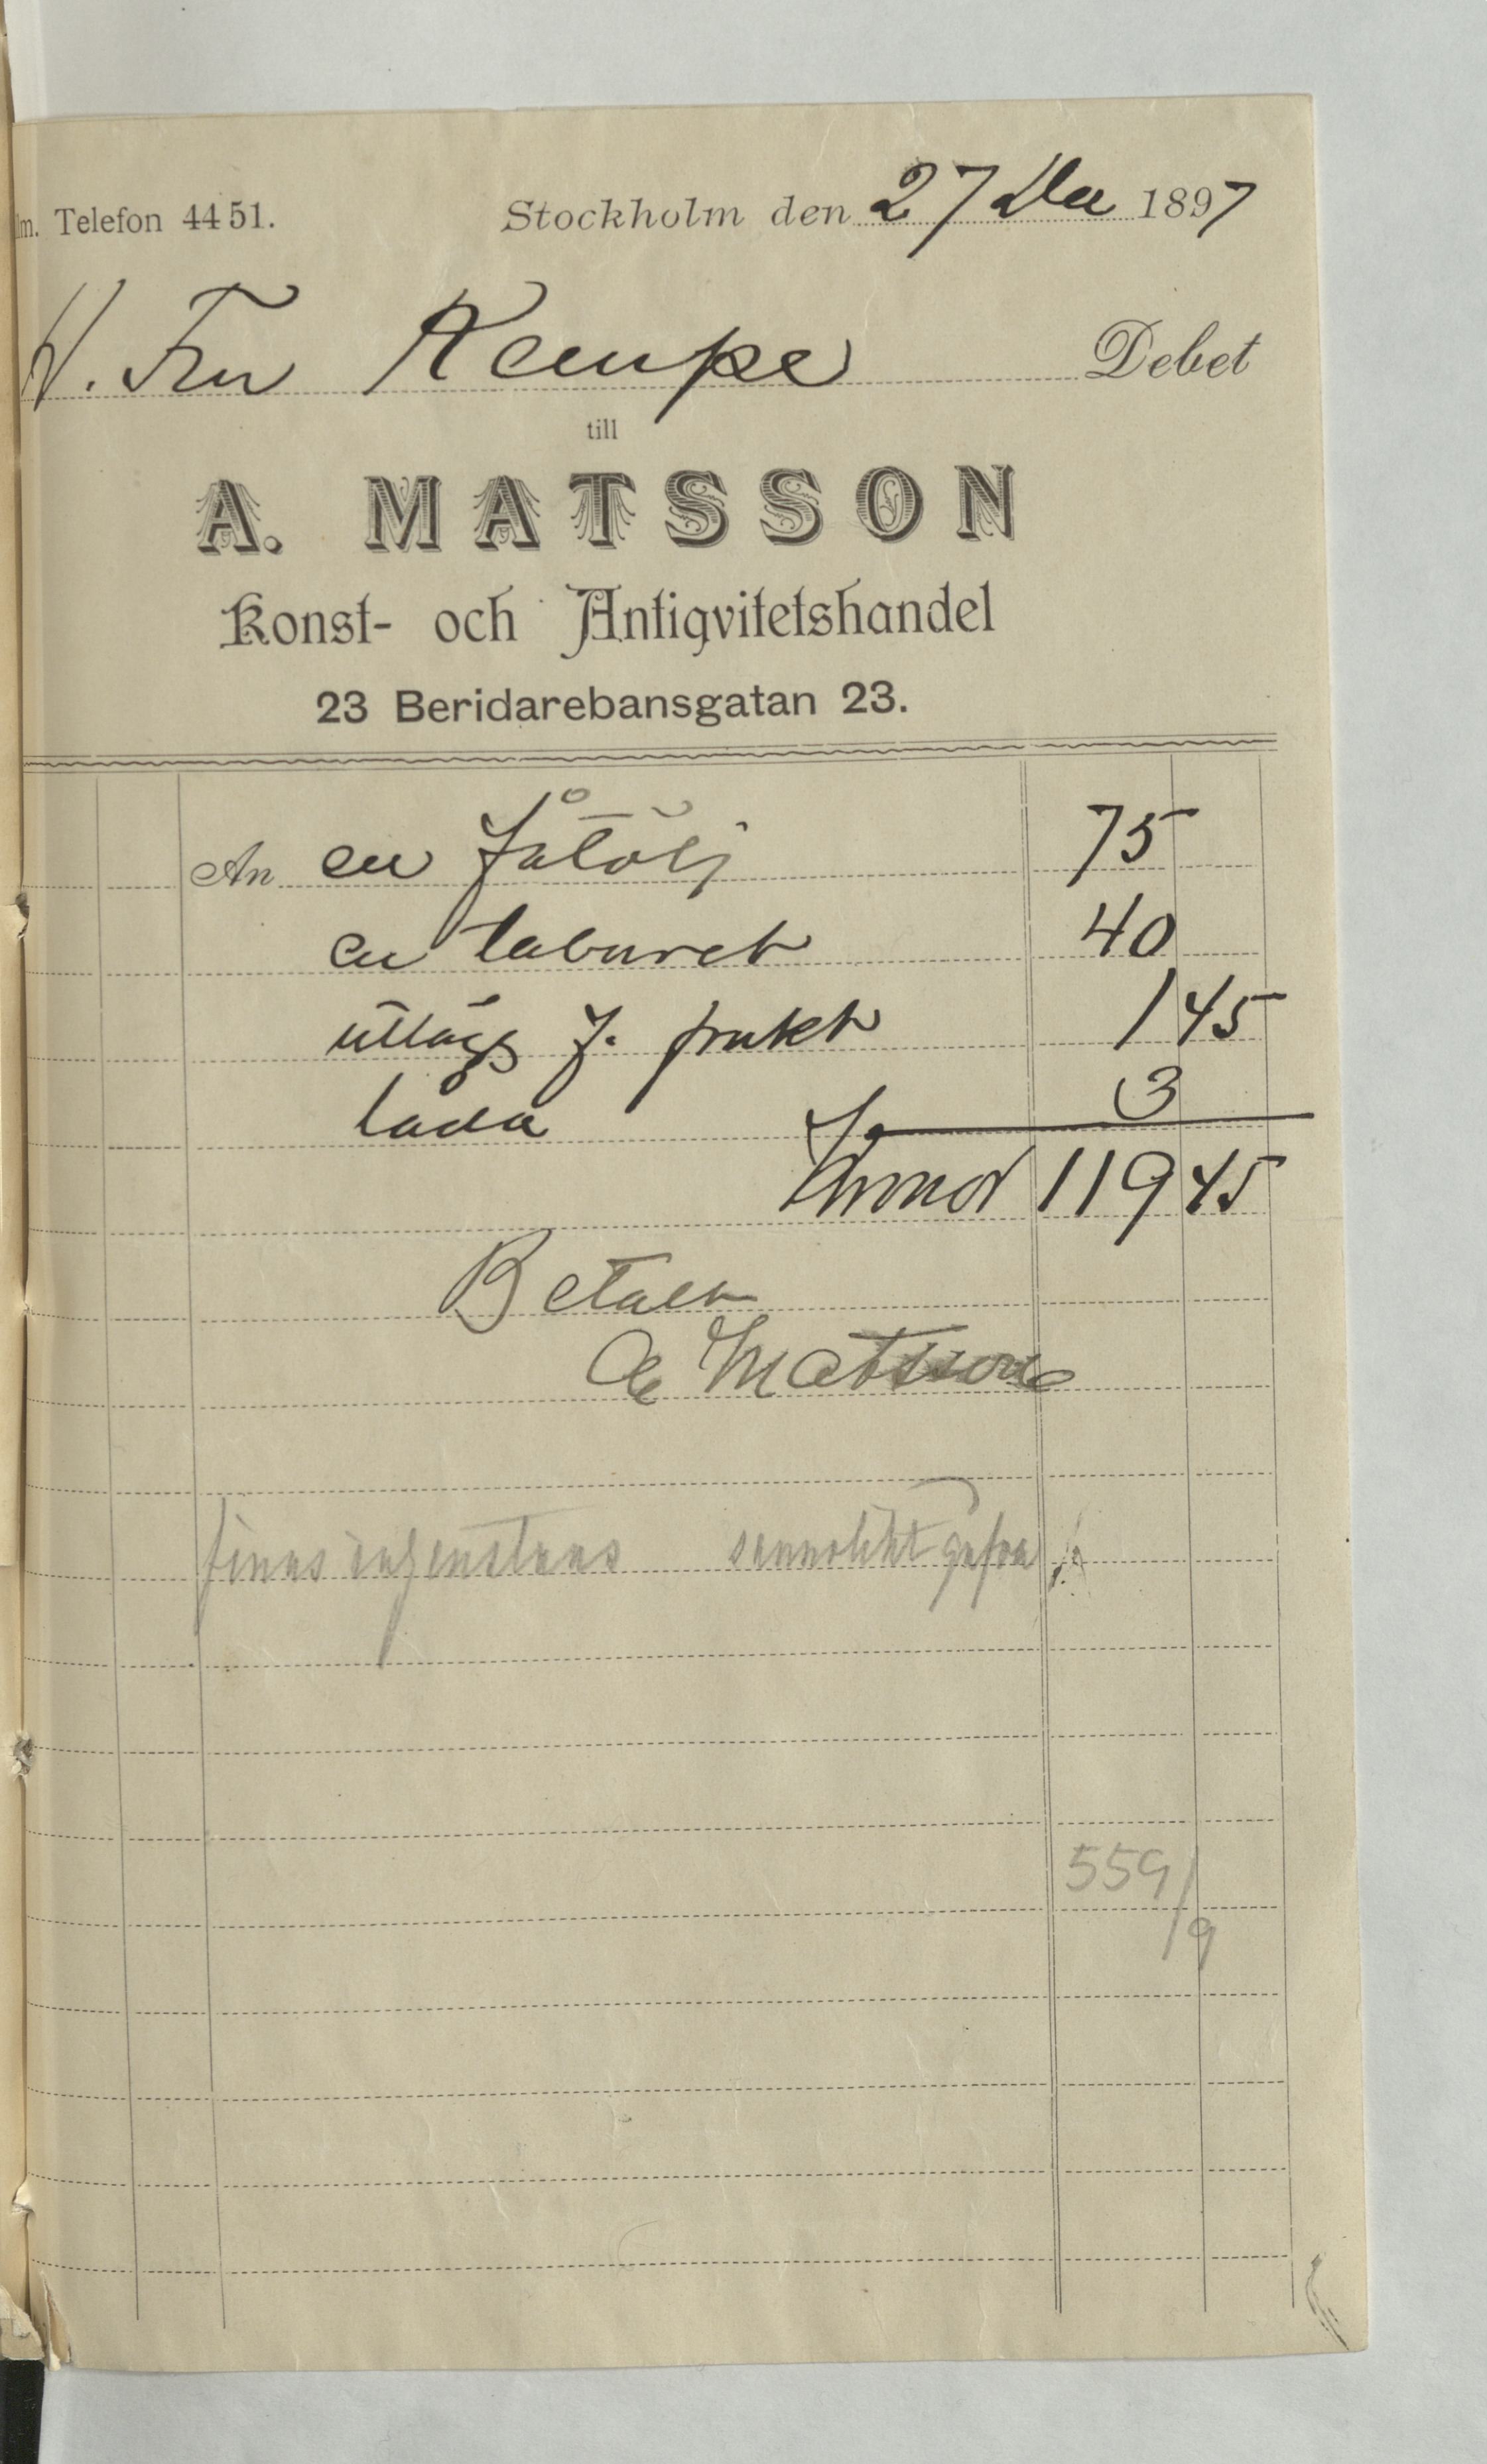 lm. Telefon 4451. Stockholm den 27 Dec 1897
H. Fru Kempe Debet
till
A. MATSSON
Konst- och Antiqvitetshandel
23 Beridarebansgatan 23.
An en fåtölj 75
en taburet 40
utlägg f. frakt 1 45
låda 3
Kronor 119 45
Betalt
A Matsson
finns ingenstans sannolikt
559/9